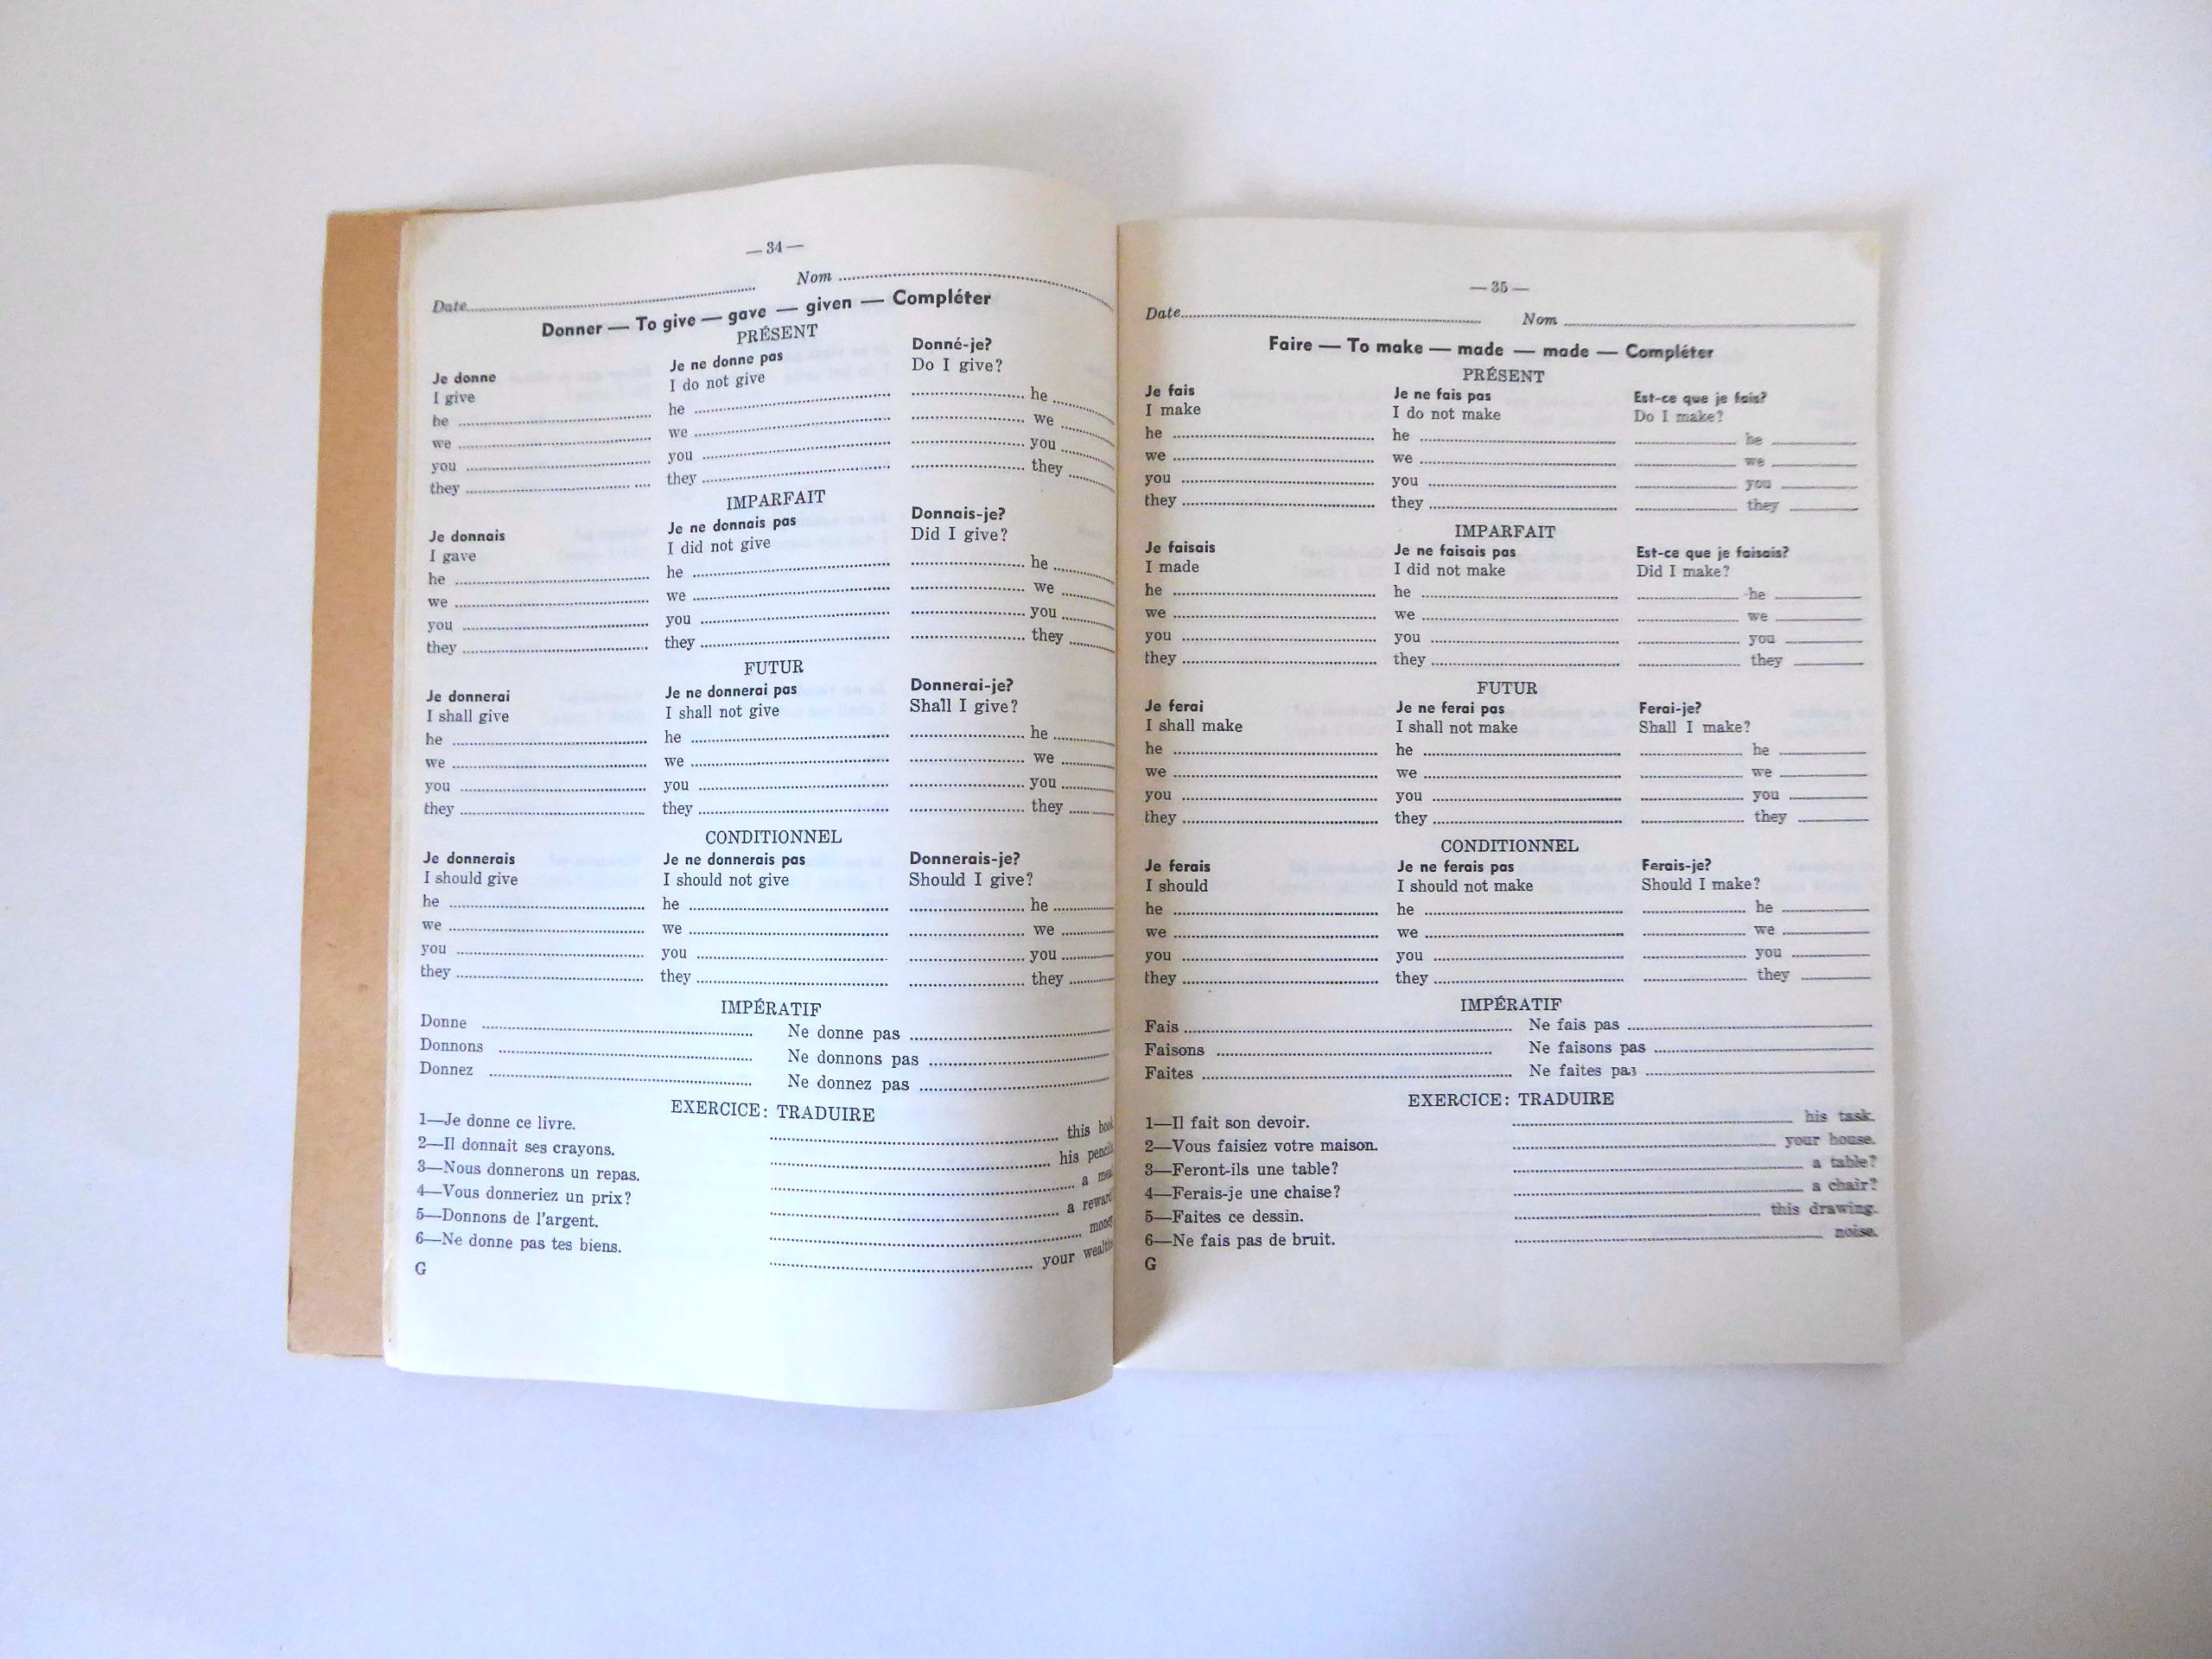 — 34 —
Date Nom
Donner — To give — gave — given — Compléter
PRÉSENT
Je donne Je ne donne pas Donné-je?
I give I do not give Do I give?
he he he
we we we
you you you
they they they
IMPARFAIT
Je donnais Je ne donnais pas Donnais-je?
I gave I did not give Did I give?
he he he
we we we
you you you
they they they
FUTUR
Je donnerai Je ne donnerai pas Donnerai-je?
I shall give I shall not give Shall I give?
he he he
we we we
you you you
they they they
CONDITIONNEL
Je donnerais Je ne donnerais pas Donnerais-je?
I should give I should not give Should I give?
he he he
we we we
you you you
they they they
IMPÉRATIF
Donne Ne donne pas
Donnons Ne donnons pas
Donnez Ne donnez pas
EXERCICE: TRADUIRE
1—Je donne ce livre. this
2—Il donnait ses crayons. his
3—Nous donnerons un repas. a
4—Vous donneriez un prix? a reward
5—Donnons de l'argent.
6—Ne donne pas tes biens. your
G
— 35 —
Date Nom
Faire — To make — made — made — Compléter
PRÉSENT
Je fais Je ne fais pas Est-ce que je fais?
I make I do not make Do I make?
he he he
we we we
you you you
they they they
IMPARFAIT
Je faisais Je ne faisais pas Est-ce que je faisais?
I made I did not make Did I make?
he he he
we we we
you you you
they they they
FUTUR
Je ferai Je ne ferai pas Ferai-je?
I shall make I shall not make Shall I make?
he he he
we we we
you you you
they they they
CONDITIONNEL
Je ferais Je ne ferais pas Ferais-je?
I should I should not make Should I make?
he he he
we we we
you you you
they they they
IMPÉRATIF
Fais Ne fais pas
Faisons Ne faisons pas
Faites Ne faites pas
EXERCICE: TRADUIRE
1—Il fait son devoir. his task.
2—Vous faisiez votre maison. your house.
3—Feront-ils une table? a table?
4—Ferais-je une chaise? a chair?
5—Faites ce dessin. this drawing.
6—Ne fais pas de bruit. noise.
G